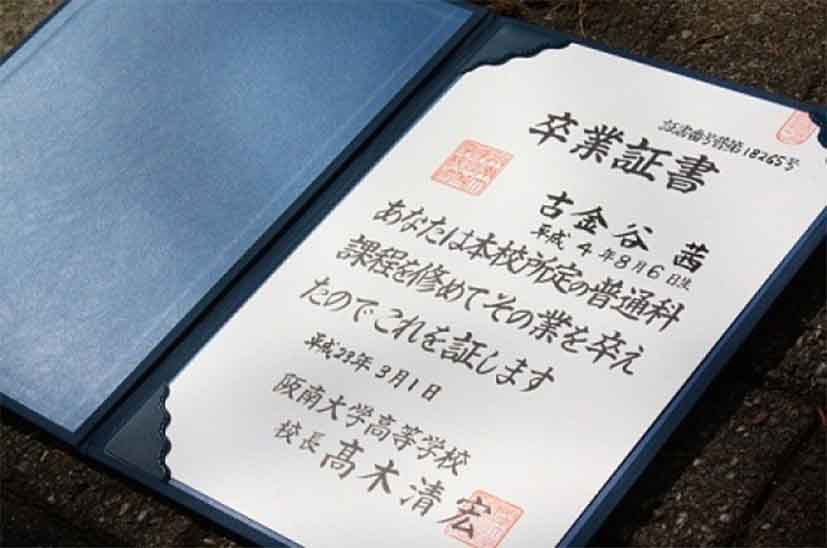 証書番号普第18265号
卒業証書
古金谷 茜
平成4年8月6日生
あなたは本校所定の普通科
課程を修めてその業を卒え
たのでこれを証します
平成23年3月1日
阪南大学高等学校
校長 髙木清宏